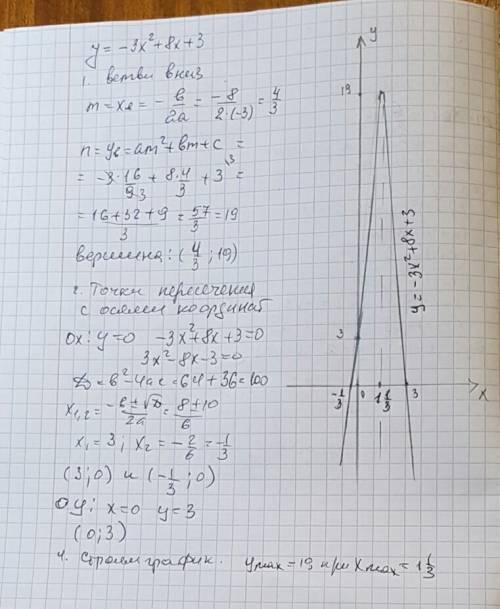 y = -3x²+8x+3
1. ветви вниз
m = xв = - в/2a = -8/2·(-3) = 4/3
n = yв = am²+bm+c =
= -3·16/9 + 8·4/3 + 3 =
= 16+32+9/3 = 57/3 = 19
вершина: (4/3; 19)
2. Точки пересечения
с осями координат
ox: y=0 -3x²+8x+3=0
3x²-8x-3=0
D = b²-4ac = 64+36=100
x1,2 = -b±√D/2a = 8±10/6
x1 = 3; x2 = -2/6 = -1/3
(3;0) и (-1/3; 0)
oy: x=0 y=3
(0;3)
4. Строим график. ymax = 19 при xmax = 1 1/3
y
19
3
-1/3 0 1 1/3 3 x
y = -3x²+8x+3